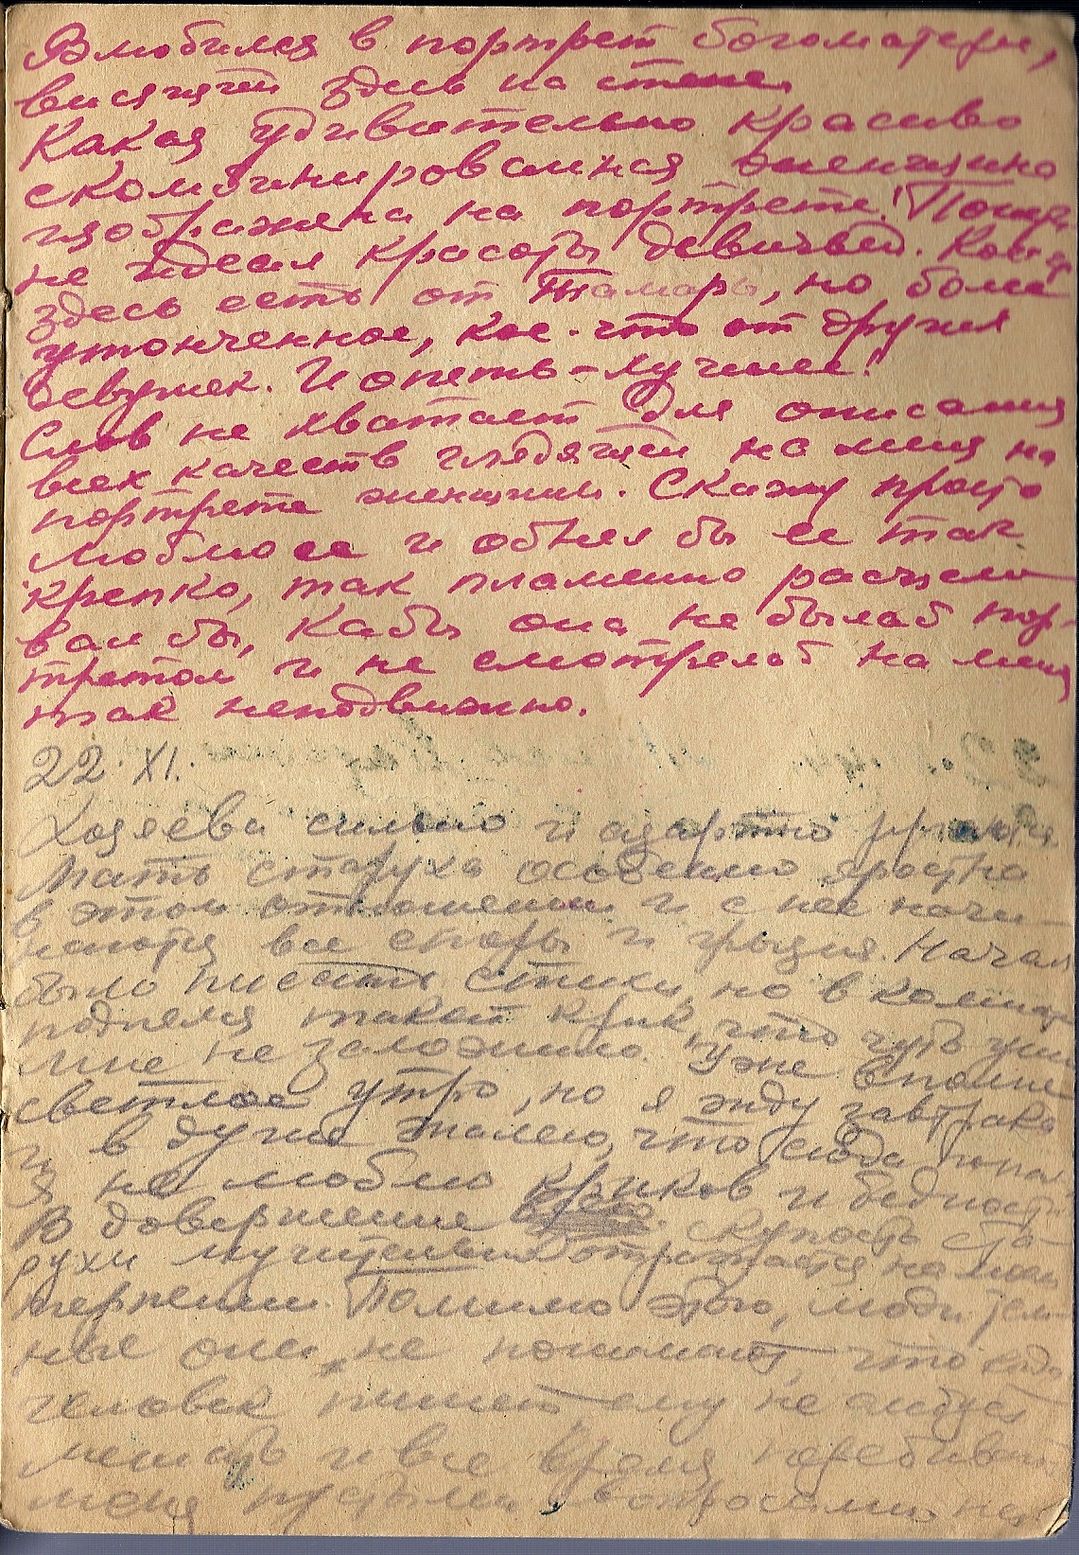 Влюбился в портрет богоматери,
висящей здесь на стене.
Какая удивительно красиво
скомбинированная женщина
изображена на портрете! Пожал.
не идеал красоты девичьей. Кое что
здесь есть от Тамары, но более
утонченное, кое-что от других
девушек. И опять – лучшее!
Слов не хватает для описания
всех качеств глядящей на меня на
портрете женщины. Скажу просто
люблю ее и обнял бы ее так
крепко, так пламенно расцело-
вал бы, кабы она не былаб пор-
третом и не смотрелаб на меня
так неподвижно.
22. XI.
Хозяева сильно и азартно
Мать старуха особенно яростна
в этом отношении и с нее начи-
наются все споры и грызня. Начал
было писать стихи, но в комнате
поднялся такой крик, что чуть уши
мне не заложило. Уже вполне
светлое утро, но я жду завтрака
и в душе жалею, что сюда попал
Я не люблю криков и бедности
В довершение скупость ста-
рухи мучительно отражается на моем
терпении. Помимо этого, люди тем-
ные они, не понимают, что когда
человек пишет ему не следует
мешать и все время перебивают
меня пустыми вопросами на